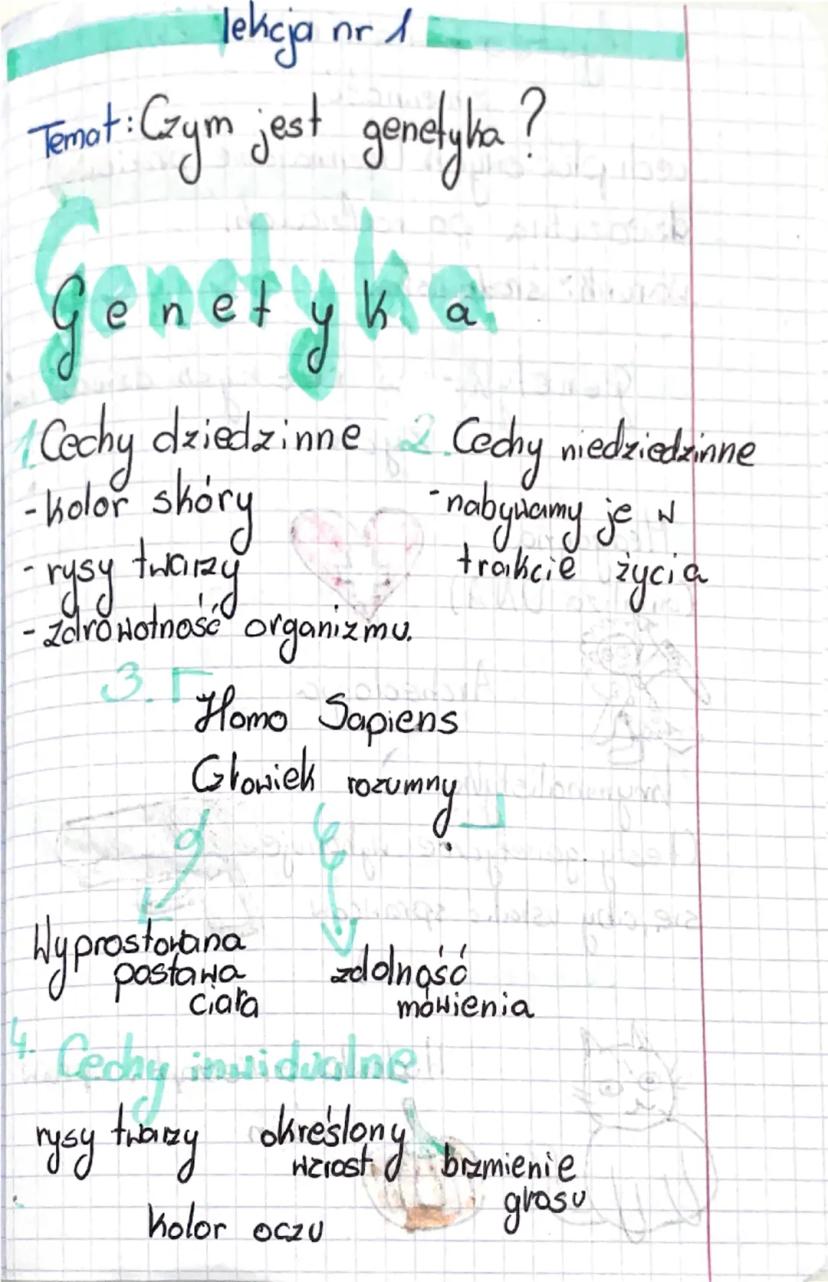 lekcja nr 1
Temat: Czym jest genetyka?
Genetyka
1. Cechy dziedzinne
- kolor skóry
- rysy twarzy
- zdrowotność organizmu.
2. Cechy niedziedzinne
- nabywamy je w
trakcie życia
3. Homo Sapiens
Człowiek rozumny
Wyprostowana
postawa
ciała
zdolność
mówienia
4. Cechy inwidualne
rysy twarzy
określony
wzrost
brzmienie
głosu
kolor oczu